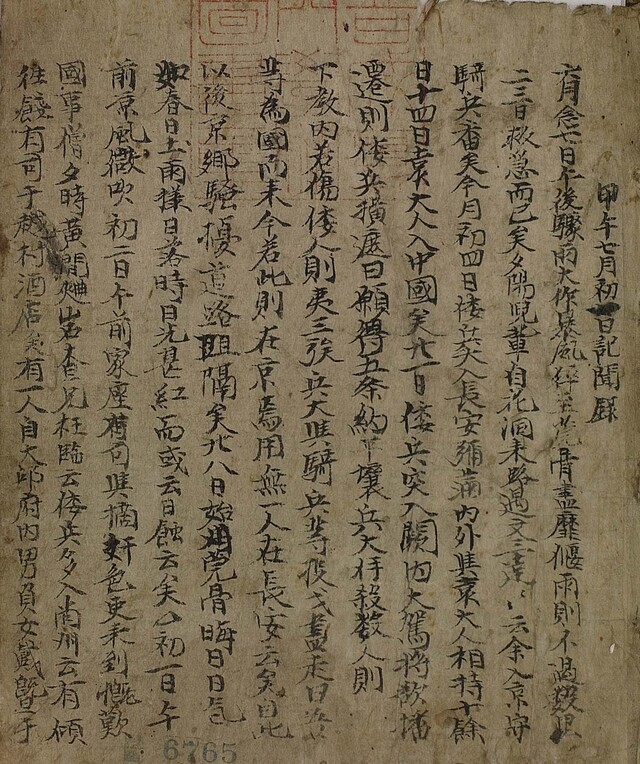 甲午七月初一日記聞錄
六月念七日午後驟雨大作暴風 靡偃雨則不過數
二三日救急而已矣夕陽兒輩自花洞來路遇文 云余入京守
騎兵番矣今月初四日倭兵突入長安彌滿內外與袁大人相持十餘
日十四日袁大人入中國矣廿一日倭兵突入闕內大駕將欲播
遷則倭共擋 曰願得五条約 平壤兵大得殺數人則
下教內若傷倭人則夷三族兵丈與騎兵等投戈盡走曰吾
等爲國而來今若此則在京焉用無一人在長安云矣自此
以後京鄉騷擾道路阻隔矣廿八日始 晦日日氣
如春日土雨樣日落時日光甚紅而或云日蝕云矣 初一日午
前京風微吹初二日午前家 與摘奸色吏來到慨歎
國事僧夕時黃澗 査兄枉臨云倭兵多入尚州云有傾
往 有司于越村酒店矣有一人自大邱府內男負女戴曁于
6765